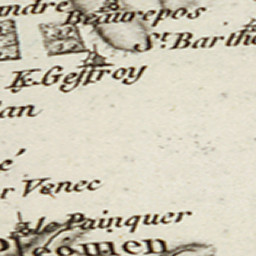 ndre
Beaurepos
St. Barthe
K. Geffroy
an
e'
r Venec
de Painquer
Ploémen